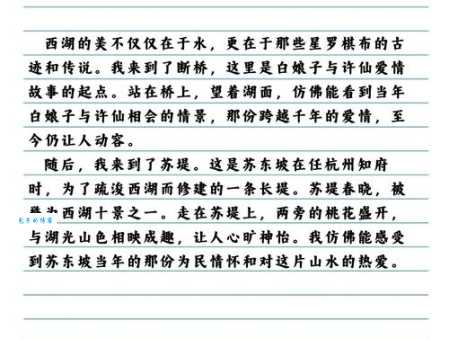 西湖的美不仅仅在于水，更在于那些星罗棋布的古
迹和传说。我来到了断桥，这里是白娘子与许仙爱情
故事的起点。站在桥上，望着湖面，仿佛能看到当年
白娘子与许仙相会的情景，那份跨越千年的爱情，至
今仍让人动容。
随后，我来到了苏堤。这是苏东坡在任杭州知府
时，为了疏浚西湖而修建的一条长堤。苏堤春晓，被
为西湖十景之一。走在苏堤上，两旁的桃花盛开，
与湖光山色相映成趣，让人心旷神怡。我仿佛能感受
到苏东坡当年的那份为民情怀和对这片山水的热爱。